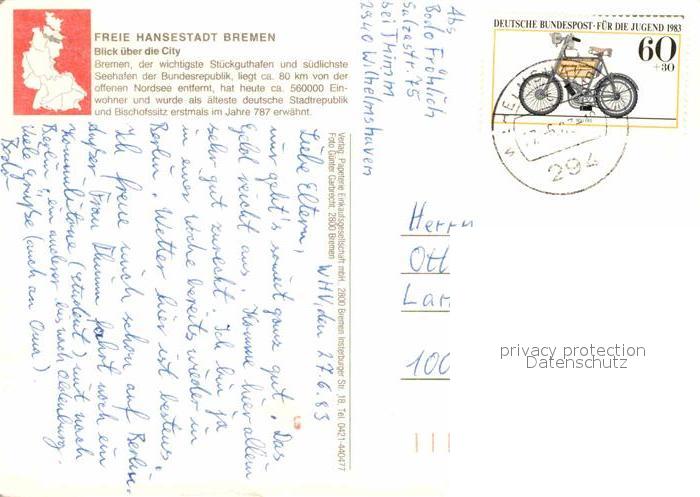 FREIE HANSESTADT BREMEN
Blick über die City
Bremen, der wichtigste Stückguthafen und südlichste
Seehafen der Bundesrepublik, liegt ca. 80 km von der
offenen Nordsee entfernt, hat heute ca. 560000 Ein-
wohner und wurde als älteste deutsche Stadtrepublik
und Bischofssitz erstmals im Jahre 787 erwähnt.
Verlag: Papeterie Einkaufsgesellschaft mbH, 2800 Bremen Insterburger Str. 18, Tel. 0421-440477
Foto Günter Garbrecht, 2800 Bremen
WHV, den 27.6.83
Liebe Eltern,
mir geht's soweit ganz gut. Das
Geld reicht aus. Komme hier allein
sehr gut zurecht. Ich bin ja
in einer Woche bereits wieder in
Berlin. Wetter hier ist bestens.
Ich freue mich schon auf Berlin.
Außer Frau Thimm fährt noch ein
Kommilitone (Student) mit nach
Berlin, ein anderer bis nach Oldenburg.
Viele Grüße (auch an Oma).
Bodo
Abs
Bodo Fröhlich
bei Thimm
2940 Wilhelmshaven
DEUTSCHE BUNDESPOST · FÜR DIE JUGEND 1983
60
+30
294
Herrn
Ott
Lan
100
privacy protection
Datenschutz